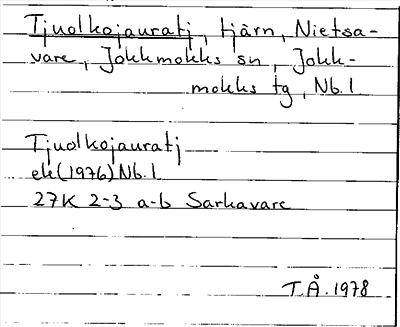 Tjuolkojauratj, tjärn, Nietsa-
vare, Jokkmokks sn, Jokk-
mokks tg, Nb. l
Tjuolkojauratj
ek(1976)Nb. l
27K 2-3 a-b Sarkavare
T.Å. 1978